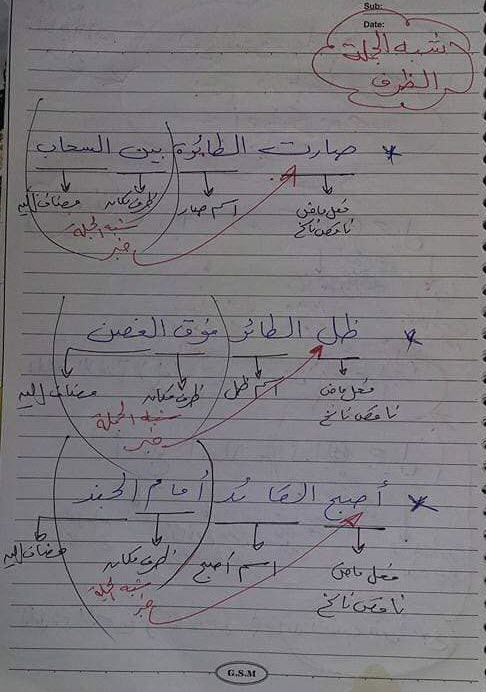 Sub:
Date:
شبه الجملة
الظرف
* صارت الطائرة بين السحاب
فعل ماض ناقص ناسخ
اسم صار
ظرف مكان
مضاف إليه
شبه الجملة
خبر
* ظل الطائر فوق الغصن
فعل ماض ناقص ناسخ
اسم ظل
ظرف مكان
مضاف إليه
شبه الجملة
خبر
* أصبح القائد أمام الجند
فعل ماض ناقص ناسخ
اسم أصبح
ظرف مكان
مضاف إليه
شبه الجملة
خبر
G.S.M